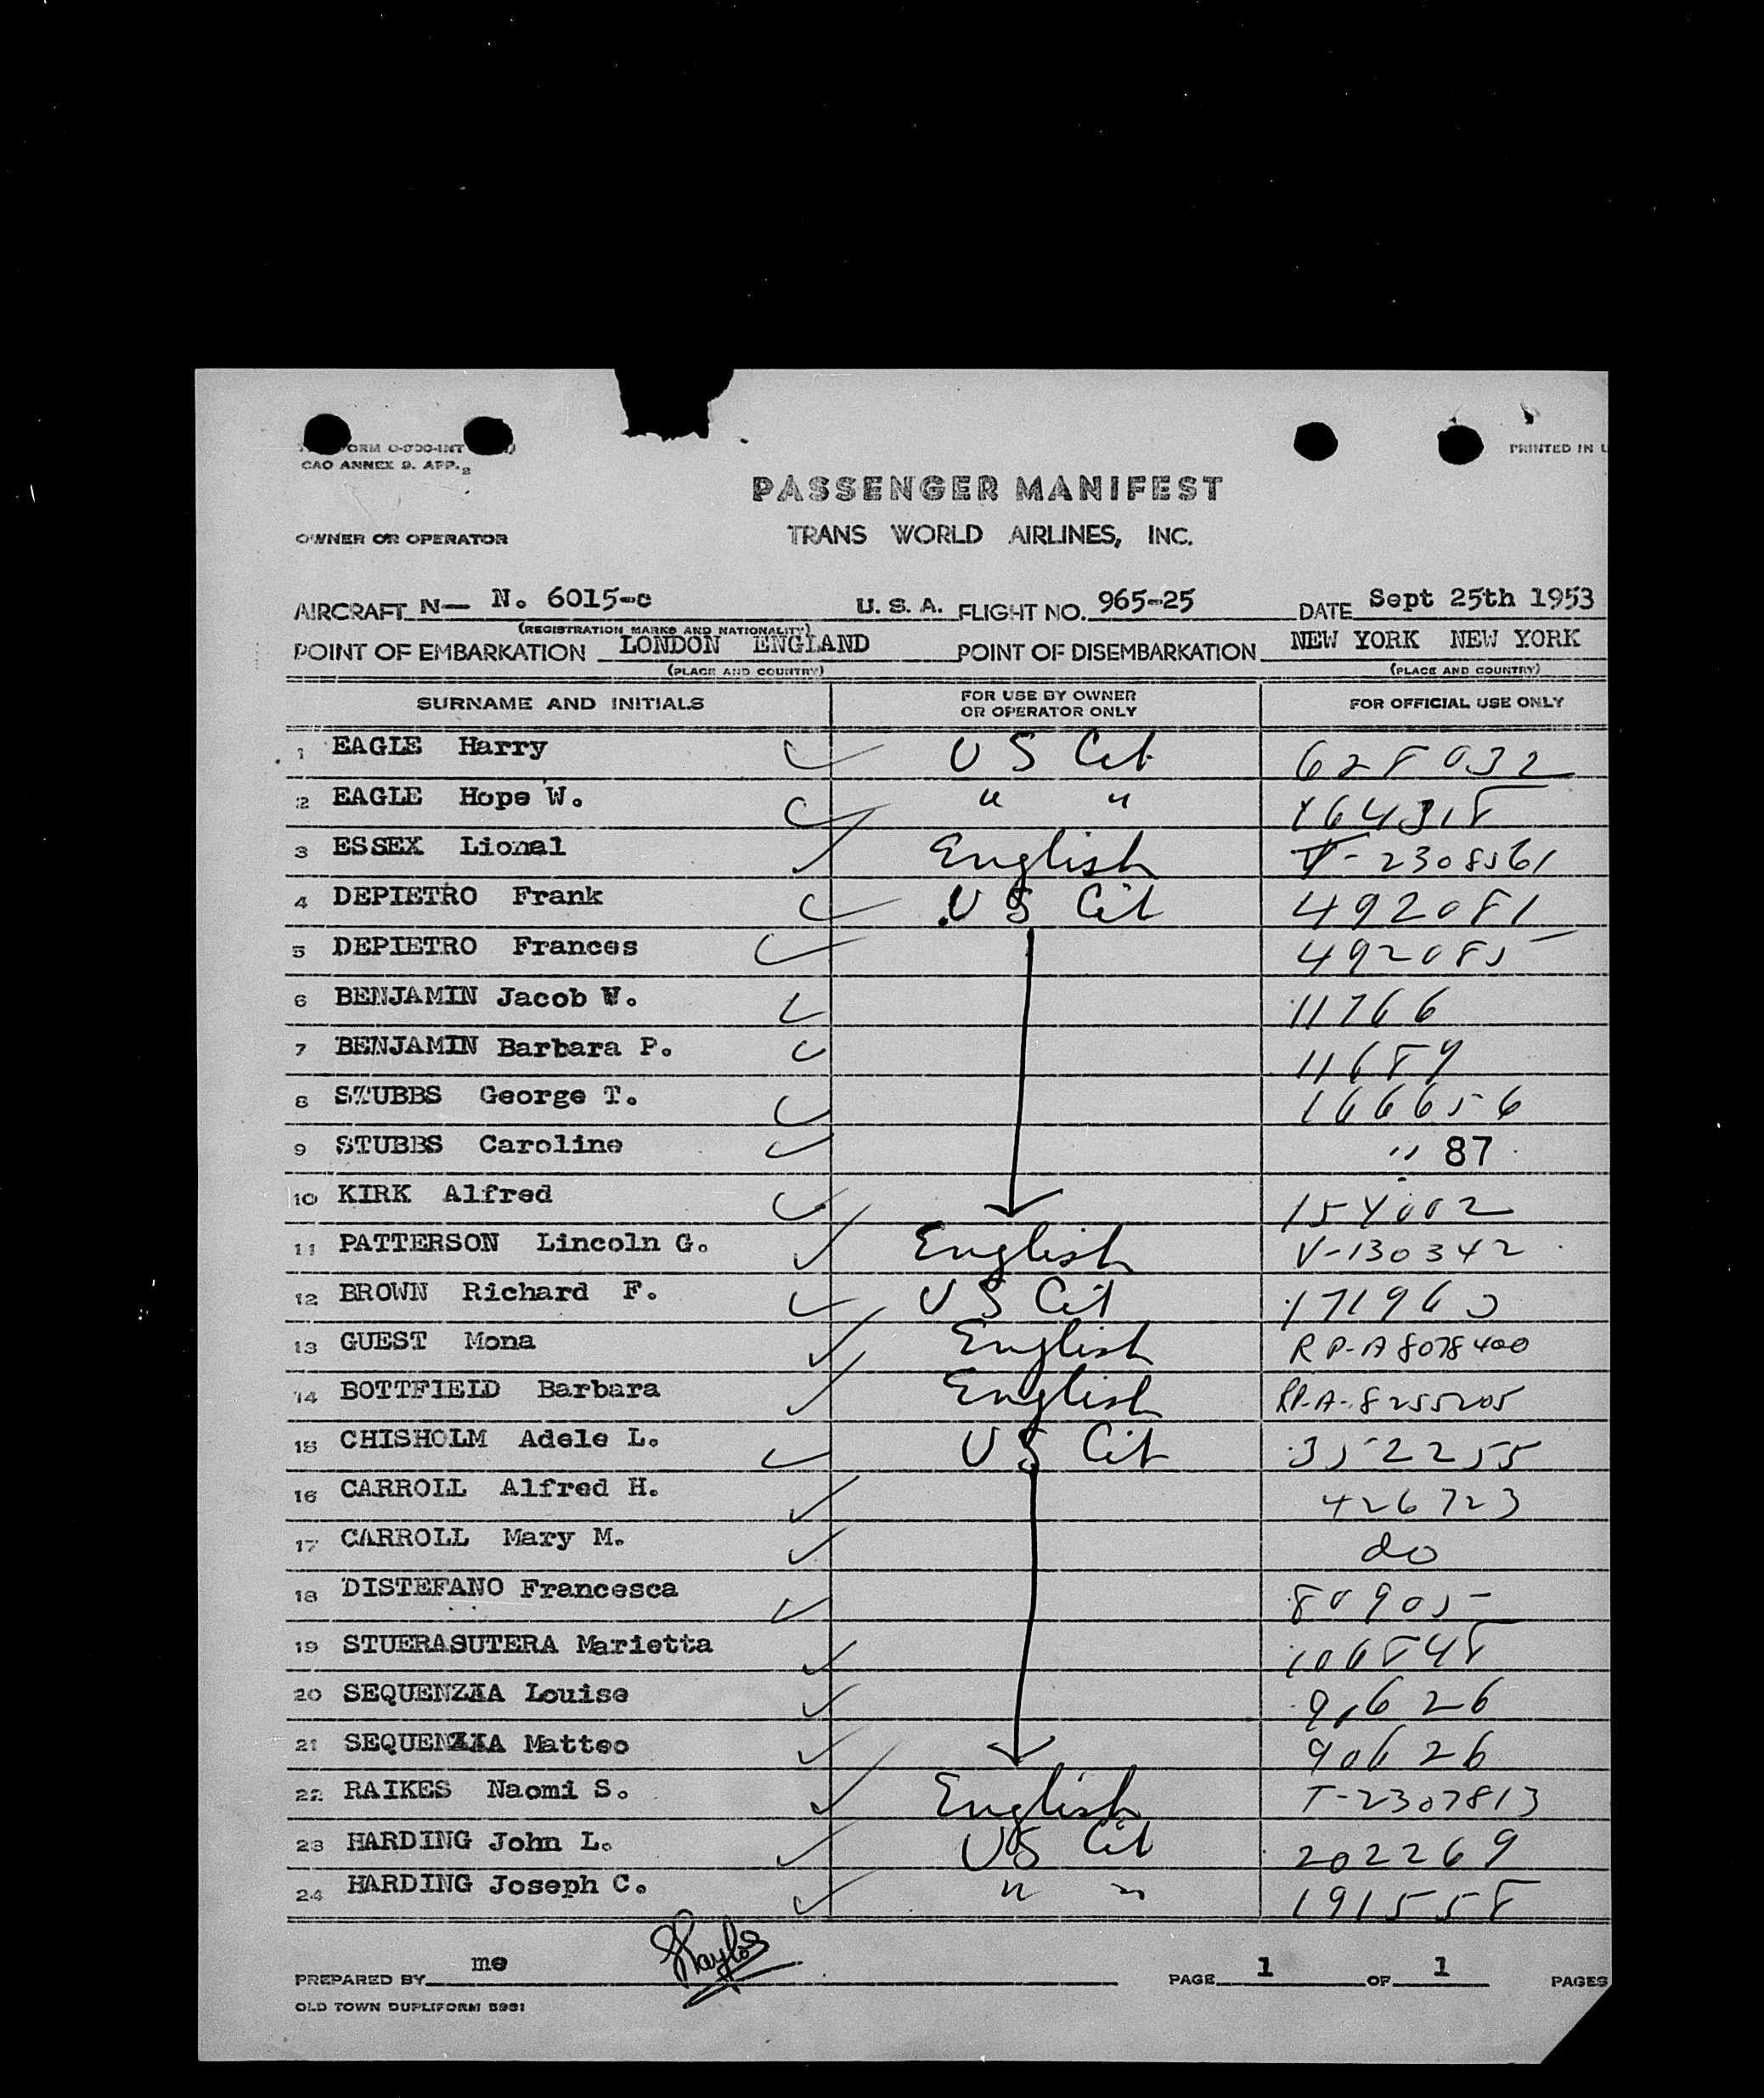 FORM O-900-INT
CAO ANNEX 9. APP. 2
PRINTED IN U
PASSENGER MANIFEST
OWNER OR OPERATOR TRANS WORLD AIRLINES, INC.
AIRCRAFT N— N. 6015-c U. S. A. FLIGHT NO. 965-25 DATE Sept 25th 1953
(REGISTRATION MARKS AND NATIONALITY)
POINT OF EMBARKATION LONDON ENGLAND POINT OF DISEMBARKATION NEW YORK NEW YORK
(PLACE AND COUNTRY) (PLACE AND COUNTRY)
SURNAME AND INITIALS FOR USE BY OWNER OR OPERATOR ONLY FOR OFFICIAL USE ONLY
1 EAGLE Harry US Cit 628032
2 EAGLE Hope W. " " 164318
3 ESSEX Lional English T-2308561
4 DEPIETRO Frank US Cit 492081
5 DEPIETRO Frances 492085
6 BENJAMIN Jacob W. 11766
7 BENJAMIN Barbara P. 11689
8 STUBBS George T. 166656
9 STUBBS Caroline " 87
10 KIRK Alfred 154002
11 PATTERSON Lincoln G. English V-130342
12 BROWN Richard F. US Cit 171960
13 GUEST Mona English RP-A8078400
14 BOTTFIELD Barbara English RP-A-8255205
15 CHISHOLM Adele L. US Cit 352255
16 CARROLL Alfred H. 426723
17 CARROLL Mary M. do
18 DISTEFANO Francesca 80905
19 STUERASUTERA Marietta 106848
20 SEQUENZIA Louise 90626
21 SEQUENZIA Matteo 90626
22 RAIKES Naomi S. English T-2307813
23 HARDING John L. US Cit 202269
24 HARDING Joseph C. " " 191558
PREPARED BY me PAGE 1 OF 1 PAGES
OLD TOWN DUPLIFORM 5981